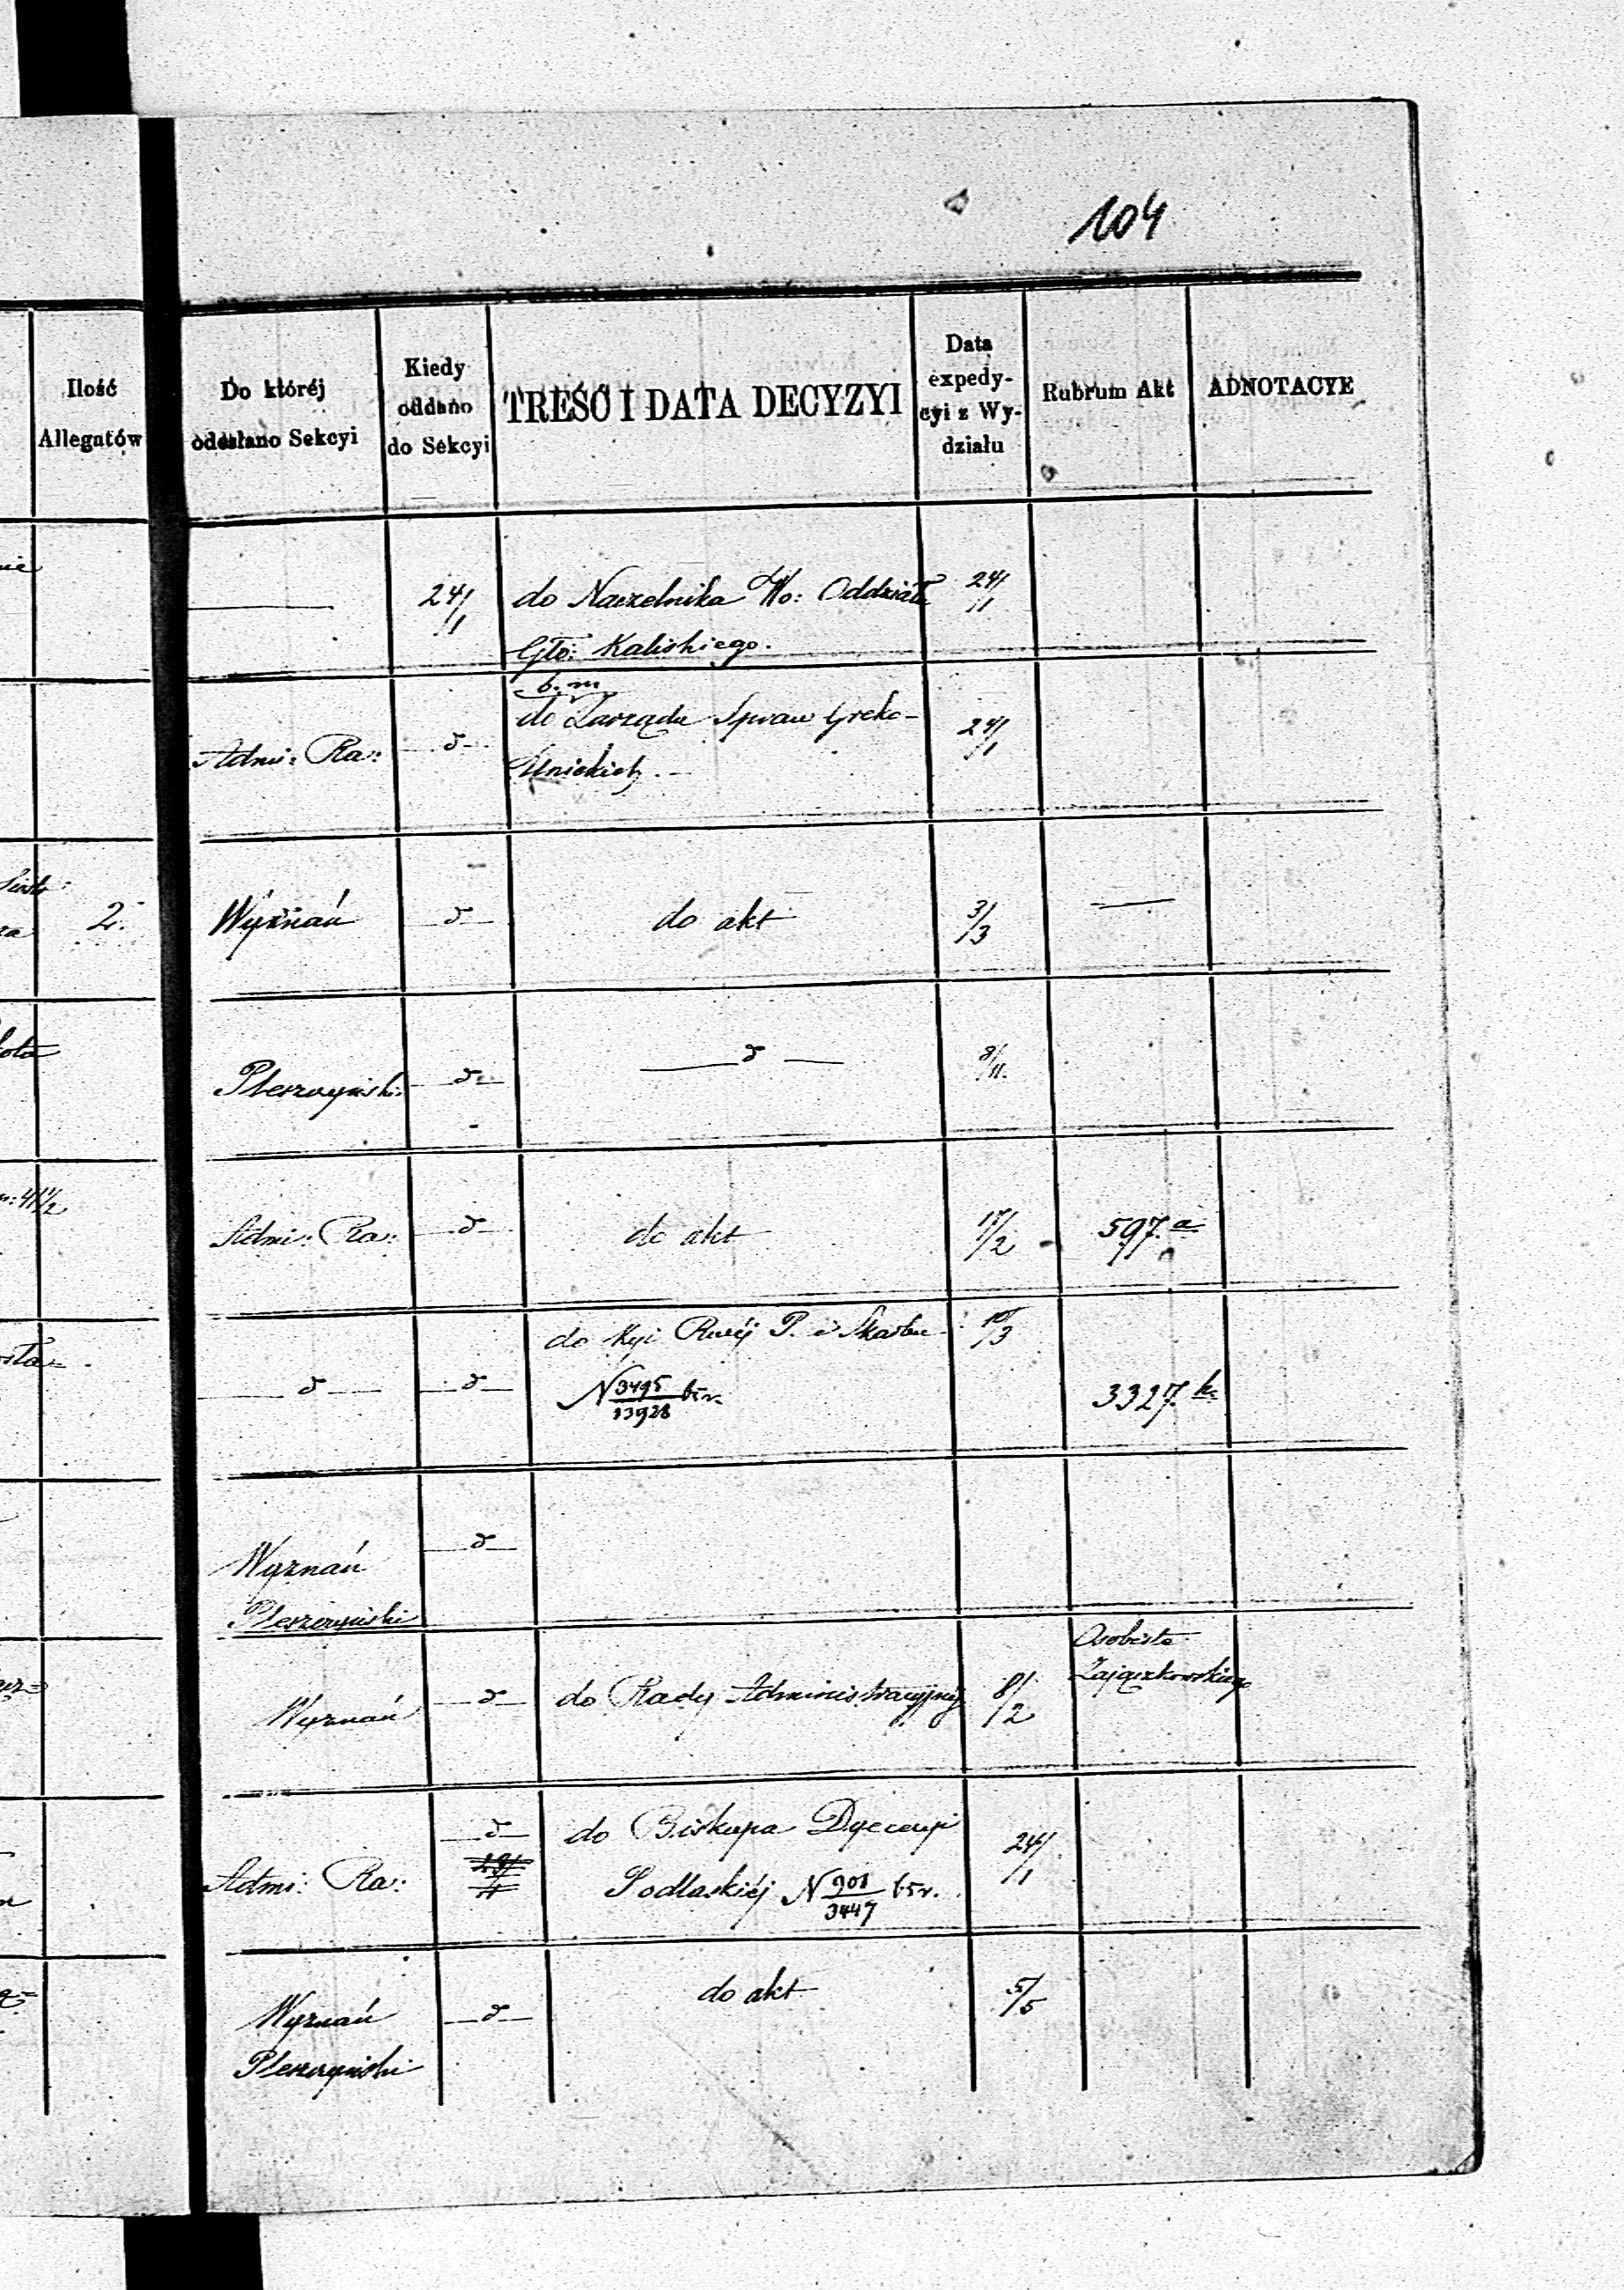 104
Ilość
Allegatów
Do któréj
odesłano Sekcyi
Kiedy
oddano
do Sekcyi
TREŚĆ I DATA DECYZYI
Data
expedy-
cyi z Wy-
działu
Rubrum Akt
ADNOTACYE
24/1
do Naczelnika Wo: Oddziału
Głó: Kaliskiego.
24/1
Admi: Ra:
b. m
do Zarządu Spraw Greko-
Unickich.
24/1
2.
Wyznań
do akt
3/3
Pleszczyński
8/11.
41 1/2
Admi: Ra:
do akt
17/2
597.a
do Kyi Rzěj P. i Skarbu
N 3495/13928 b.r.
10/3
3327.k.
Wyznań
Pleszczyński
Wyznań
do Rady Administracyjnéj
8/2
Osobiste
Zajączkowskiego
Admi: Ra:
do Biskupa Dyecezyi
Podlaskiéj N 901/3447 b.r.
24/1
Wyznań
Pleszczyński
do akt
5/5